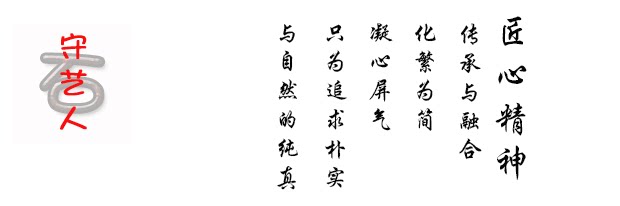 守艺人
匠心精神
传承与融合
化繁为简
凝心屏气
只为追求朴实
与自然的纯真